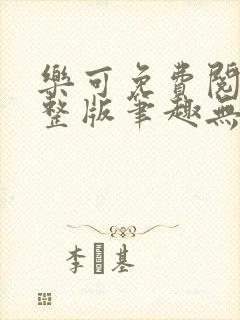 樂可免費閱
整版筆趣無
李 基